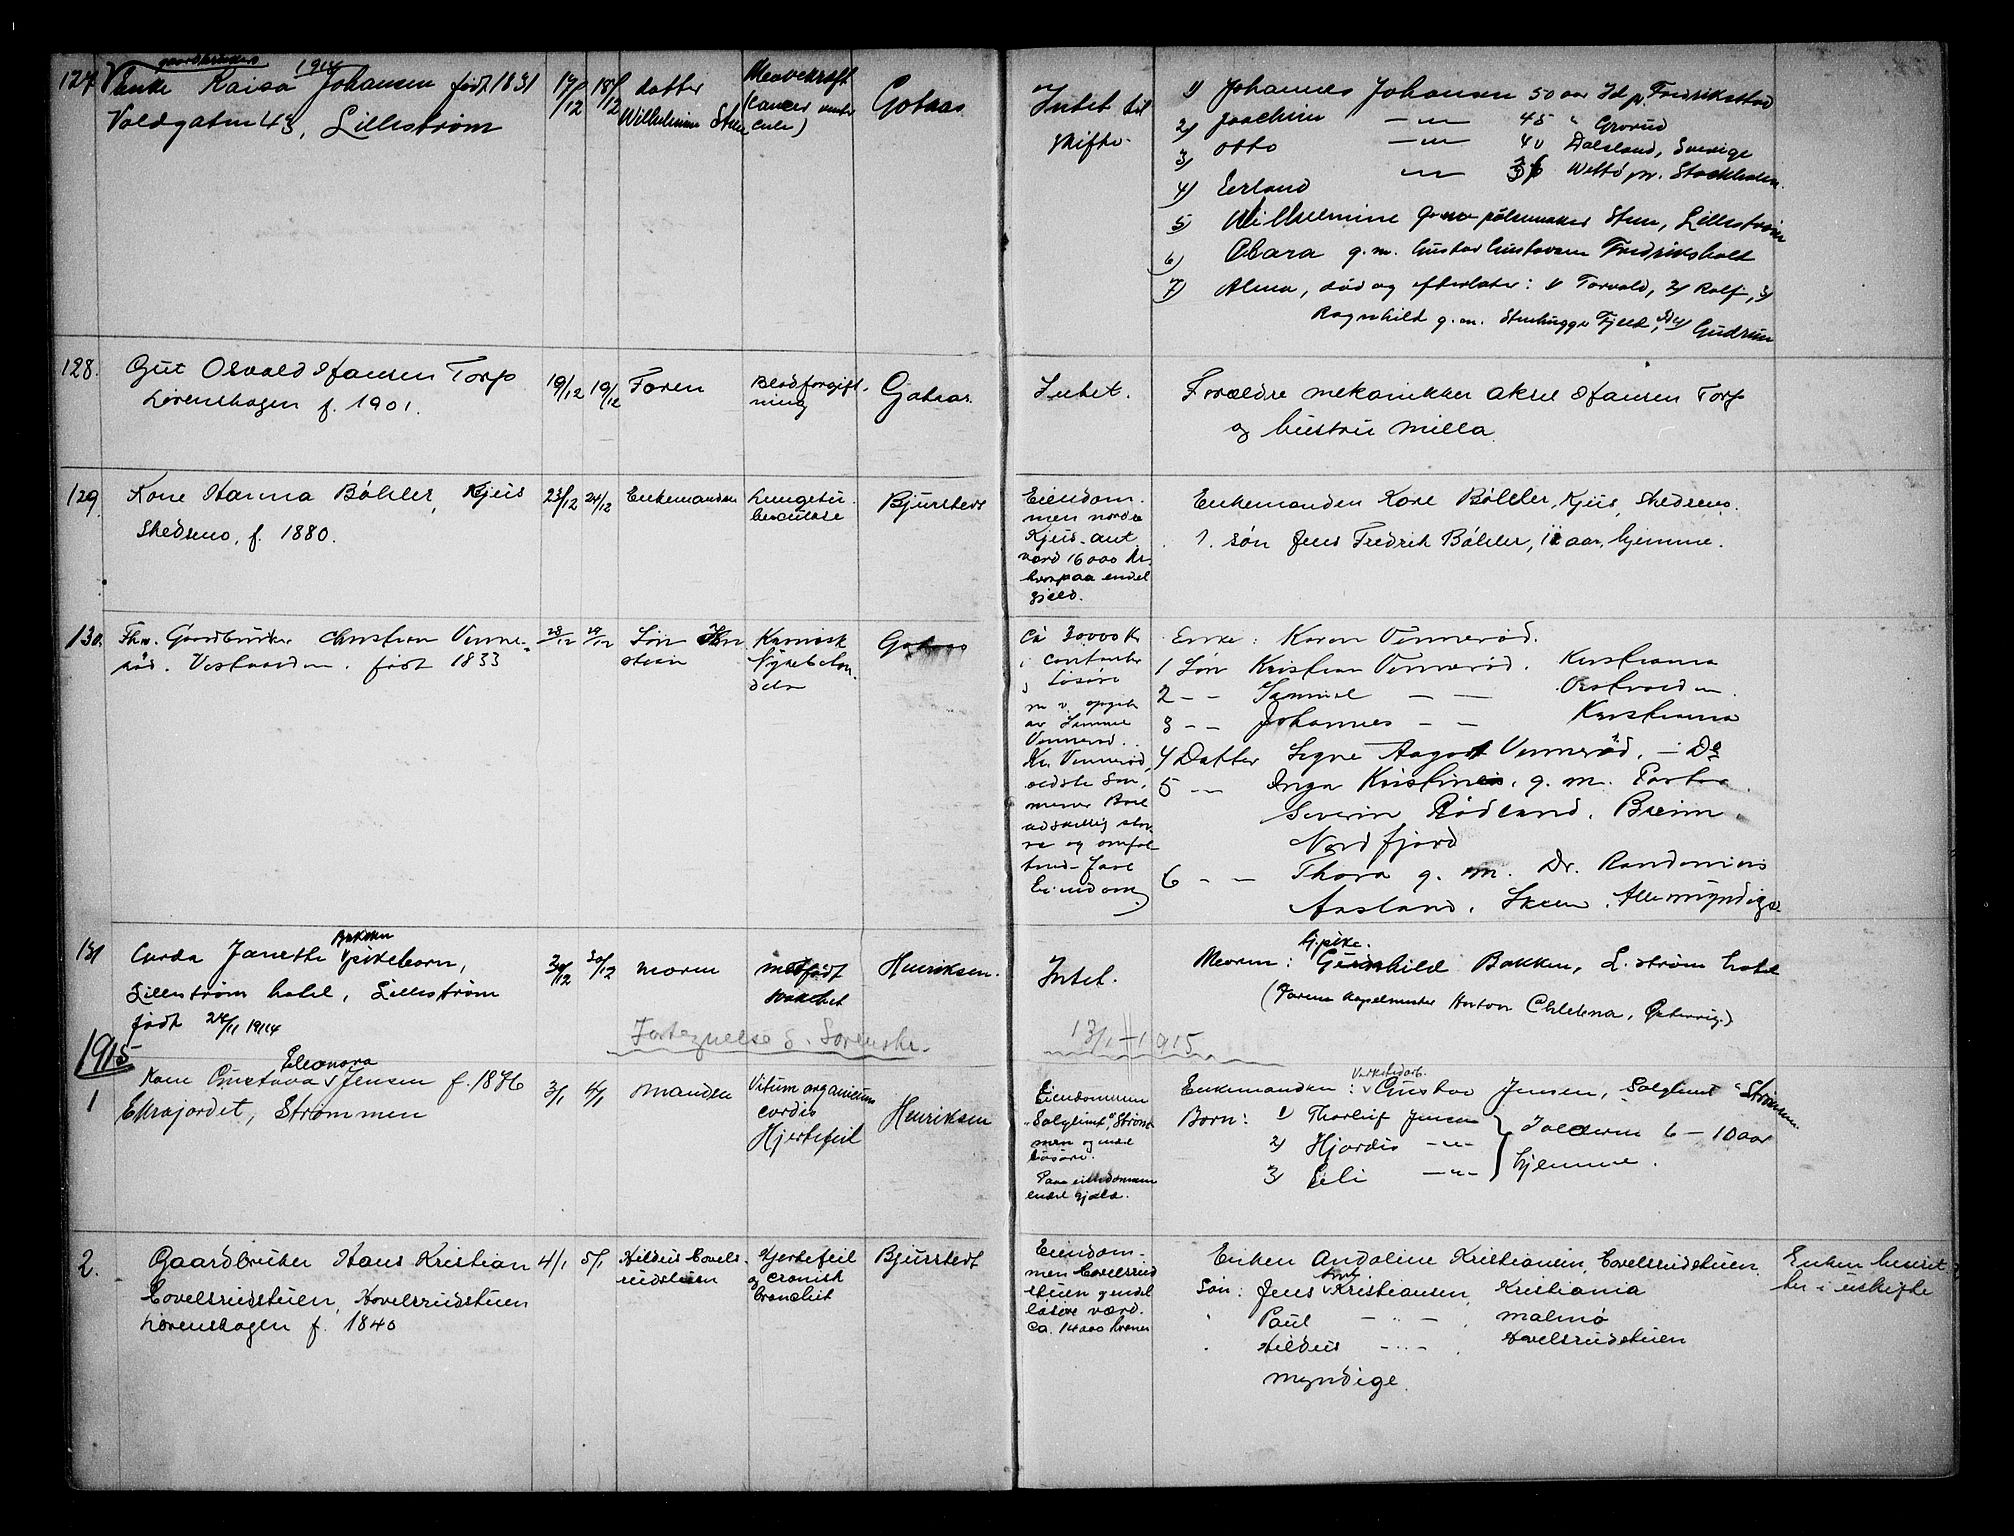 1914
127. Enke Kaisa Johansen født 1831
Voldgaten 43, Lillestrøm
17/12 18/12
datter
Wilhelmine Steen
Mavekræft
(cancer ventr
culi)
Gotaas
Intet til
skifte.
1) Johannes Johansen 50 aar Id p. Fredrikstad
2) Joachim —"— 45 " Grorud
3) Otto —"— 40 Dalsland, Sverige
4) Erland —"— Wettö pr. Stockholm
5 Wilhelmine g. m. pølsemaker Steen, Lillestrøm
6) Clara g. m. Gustav Gustavsen Fredrikshald
7) Alma, død og efterlater: 1) Torvald, 2) Rolf, 3)
Ragnhild g. m. Stenhugger Fjeld, 4) Gudrun
128. Gut Osvald Hansen Torp
Lørenskogen f. 1901.
19/12 19/12
Faren
Blodforgift-
ning
Gotaas
Intet.
Forældre mekanikker Aksel Hansen Torp
og hustru Milla
129 Kone Hanna Bøhler, Kjus
Skedsmo, f. 1880.
23/12 24/12
Enkemanden
Lungetu-
berculose
Bjurstedt
Eiendom-
men nordre
Kjus ant.
værd 16000 kr.
hvorpaa endel
gjeld.
Enkemanden Kore Bøhler, Kjus, Skedsmo.
1. søn Jens Fredrik Bøhler, 11 aar, hjemme.
130. Fhv. Gaardbruker Christian Venne-
rød. Vestvolden. født 1833
28/12 29/12
Søn Kri
stian
Kronisk
Nyrebeten
delse
Gotaas
Ca 30000 Kr
i contanter
i Løsøre
m v. opgit
av Sønnen
Vennerød.
Kr. Vennerød,
ældste Søn,
mener Boet
adskillig stør-
re og omfat
tende fast
Eiendom)
Enke: Karen Vennerød.
1 Søn Kristian Vennerød. Kristiania
2 - - Samuel — —
3 - - Johannes — — Kristiania
4 Datter Signe Aagot Vennerød. — Do
5 - - Inga Kristine, g. m. Pastor
Severin Rødland. Breim.
Nordfjord
6 - - Thora g. m. Dr. Randonius
Aasland, Skien. Alle myndige
131 Gerda Janette Bakken pikebarn,
Lillestrøm hotel, Lillestrøm
født 24/11 1914
30/12
moren
medfødt
svakhet
Henriksen.
Intet.
tj.pike.
Moren: Gunhild Bakken, L.strøm hotel
(Faren kapelmester Anton Chlebna, Østerrig.)
Fortegnelse S. Sorenskr.
13/1 1915
1915
Eleonora
1 Kone Gustava Jensen f. 1876
Ekrajordet, Strømmen
3/1 4/1
Manden
Vitium organicum
cordis
Hjertefeil
Henriksen
Eiendommen
"Solglimt", Strøm
men og endel
løsøre.
Paa eiendommen
endel gjæld.
Verkstedarb.
Enkemanden: Gustav Jensen, Solglimt Strømmen
Børn: 1) Thorleif Jensen
2) Hjørdis —"—
3) Lili —"—
I alderen 6 — 10 aar
hjemme.
2. Gaardbruker Hans Kristian
Hovelsrudstuen, Hovelsrudstuen
Lørenskogen f. 1840
4/1 5/1
Hildus Hovels-
rudstuen
Hjertefeil
og cronisk
bronchit
Bjurstedt
Eiendom-
men Hovelsrud
stuen og endel
løsøre værd.
ca. 14000 kroner
Enken Andoline Kristiansen, Hovelsrudstuen.
Søn: Jens Kristiansen, Kristiania
" Paul —"— , Malmø
" Hildus —"— , Hovelsrudstuen
myndige.
Enken henset.
ter i uskifte